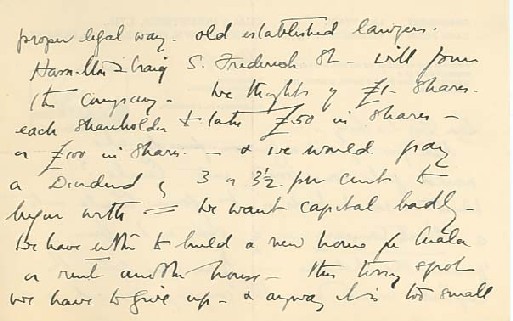 proper legal way. old established lawyers.
Hamilton & Craig S. Frederick St - will form
the Company - We thought of £1 Shares.
each Shareholder to take £50 in Shares -
or £100 in Shares. - & we would pay
a Dividend of 3 or 3½ per cent to
begin with = We want capital badly -
We have either to build a new home for Cuala
or rent another house - this spot
we have to give up - & anyway it is too small